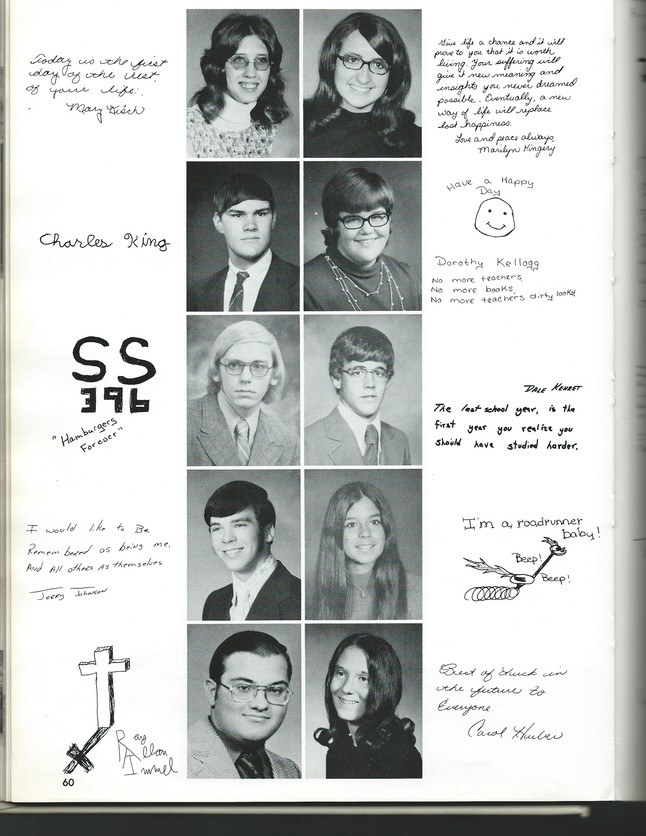 Today is the first
day of the rest
of your life.
Mary Disch
Give life a chance and it will
prove to you that it is worth
living. Your suffering will
give it new meaning and
insights you never dreamed
possible. Eventually, a new
way of life will replace
lost happiness.
Love and peace always,
Marilyn Kingery
Charles King
Have a Happy
Day
Dorothy Kellogg
No more teachers,
No more books,
No more teachers dirty looks!
SS
396
"Hamburgers
Forever"
DALE KEHRET
The last school year, is the
first year you realize you
should have studied harder.
I would like to Be
Remembered as being me.
And All others As themselves
Jerry Johnson
I'm a roadrunner
baby!
Beep!
Beep!
Ray
Allan
Immel
Best of luck in
the future to
Everyone.
Carol Huber
60